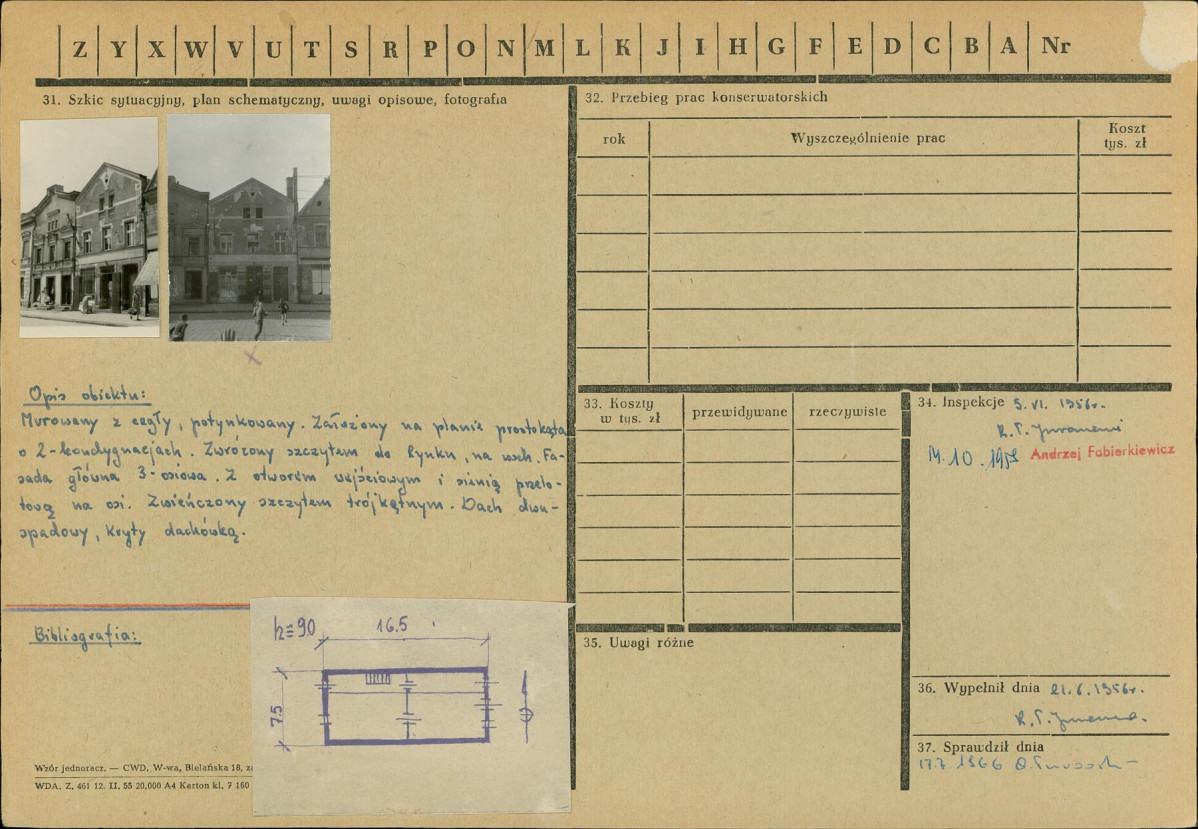 Z Y X W V U T S R P O N M L K J I H G F E D C B A Nr
31. Szkic sytuacyjny, plan schematyczny, uwagi opisowe, fotografia
Opis obiektu:
Murowany z cegły, potynkowany. Założony na planie prostokąta
o 2-kondygnacjach. Zwrócony szczytem do Rynku, na wsch. Fa-
sada główna 3-osiowa. Z otworem wejściowym i sienią przelo-
tową na osi. Zwieńczony szczytem trójkątnym. Dach dwu-
spadowy, kryty dachówką.
Bibliografia:
h=9.0
16.5
7.5
Wzór jednoracz. — CWD, W-wa, Bielańska 18,
WDA. Z. 461 12. II. 55 20,000 A4 Karton kl. 7 160
32. Przebieg prac konserwatorskich
rok
Wyszczególnienie prac
Koszt
tys. zł
33. Koszty
w tys. zł
przewidywane
rzeczywiste
34. Inspekcje 5. VI. 1956r.
Andrzej Fabierkiewicz
35. Uwagi różne
36. Wypełnił dnia 21.6.1956r.
37. Sprawdził dnia
17.7 1966